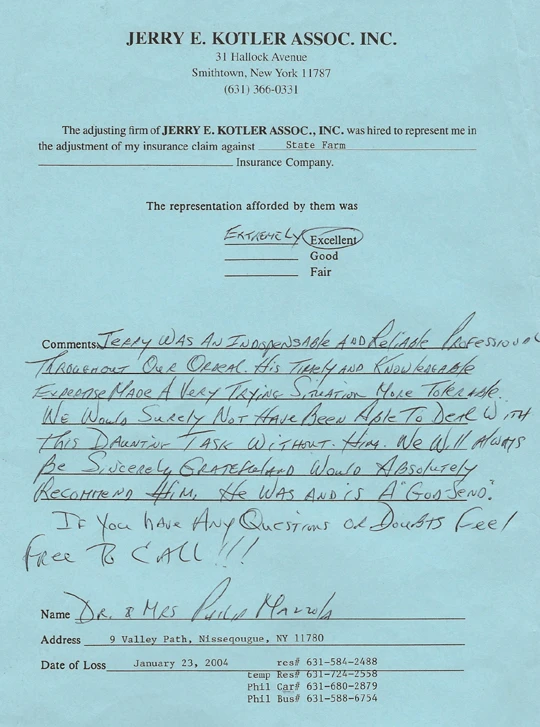 JERRY E. KOTLER ASSOC. INC.
31 Hallock Avenue
Smithtown, New York 11787
(631) 366-0331
The adjusting firm of JERRY E. KOTLER ASSOC., INC. was hired to represent me in
the adjustment of my insurance claim against State Farm
Insurance Company.
The representation afforded by them was
EXTREMELY Excellent
Good
Fair
Comments: JERRY WAS AN INDISPENSABLE AND RELIABLE PROFESSIONAL
THROUGHOUT OUR ORDEAL. HIS TIMELY AND KNOWLEDGABLE
EXPERTISE MADE A VERY TRYING SITUATION MORE TOLERABLE.
WE WOULD SURELY NOT HAVE BEEN ABLE TO DEAL WITH
THIS DAUNTING TASK WITHOUT HIM. WE WILL ALWAYS
BE SINCERELY GRATEFUL AND WOULD ABSOLUTELY
RECOMMEND HIM. HE WAS AND IS A "GOD SEND".
IF YOU HAVE ANY QUESTIONS OR DOUBTS FEEL
FREE TO CALL!!!
Name DR. & MRS PHILIP MAZZOLA
Address 9 Valley Path, Nisseqougue, NY 11780
Date of Loss January 23, 2004 res# 631-584-2488
temp Res# 631-724-2558
Phil Car# 631-680-2879
Phil Bus# 631-588-6754